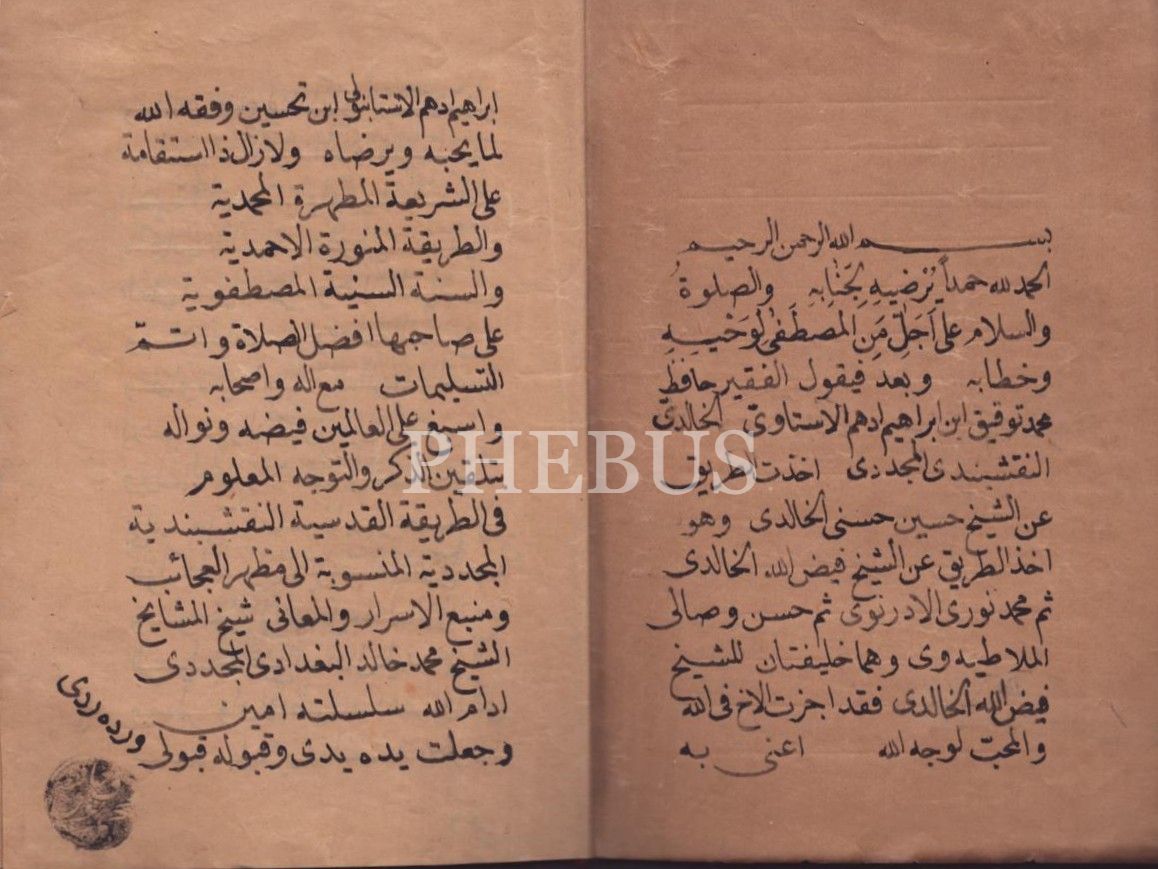 بسم الله الرحمن الرحيم
الحمد لله حمداً نُرضيهِ لِجَنابِهِ والصلوةُ
والسلام على اَجَلِّ مَنِ المصطَفٰى لِوَحْيِهِ
وخطابه وبعد فيقول الفقير حافظ
محمد توفيق ابن ابراهيم ادهم الاستاوىّ الخالدىّ
النقشبندى المجددى اخذت الطريق
عن الشيخ حسين حسنى الخالدى وهو
اخذ الطريق عن الشيخ فيض الله الخالدى
ثم محمد نورى الادرنوى ثم حسن وصالى
الملاطيه وى وهما خليفتان للشيخ
فيض الله الخالدى فقد اجزت الاخ فى الله
والمحبّ لوجه الله اعنى به
ابراهيم ادهم الاستانبولى ابن تحسين وفقه الله
لما يحبه ويرضاه ولازال ذا استقامة
على الشريعة المطهرة المحمدية
والطريقة المنورة الاحمدية
والسنة السنية المصطفوية
على صاحبها افضل الصلاة واتمّ
التسليمات مع اله واصحابه
واسبغ على العالمين فيضه ونواله
بتلقين الذكر والتوجه المعلوم
فى الطريقة القدسية النقشبندية
المجددية المنسوبة الى مظهر العجائب
ومنبع الاسرار والمعانى شيخ المشايخ
الشيخ محمد خالد البغدادى المجددى
ادام الله سلسلته امين
وجعلت يده يدى وقبوله قبولى
ورده ردى
PHEBUS